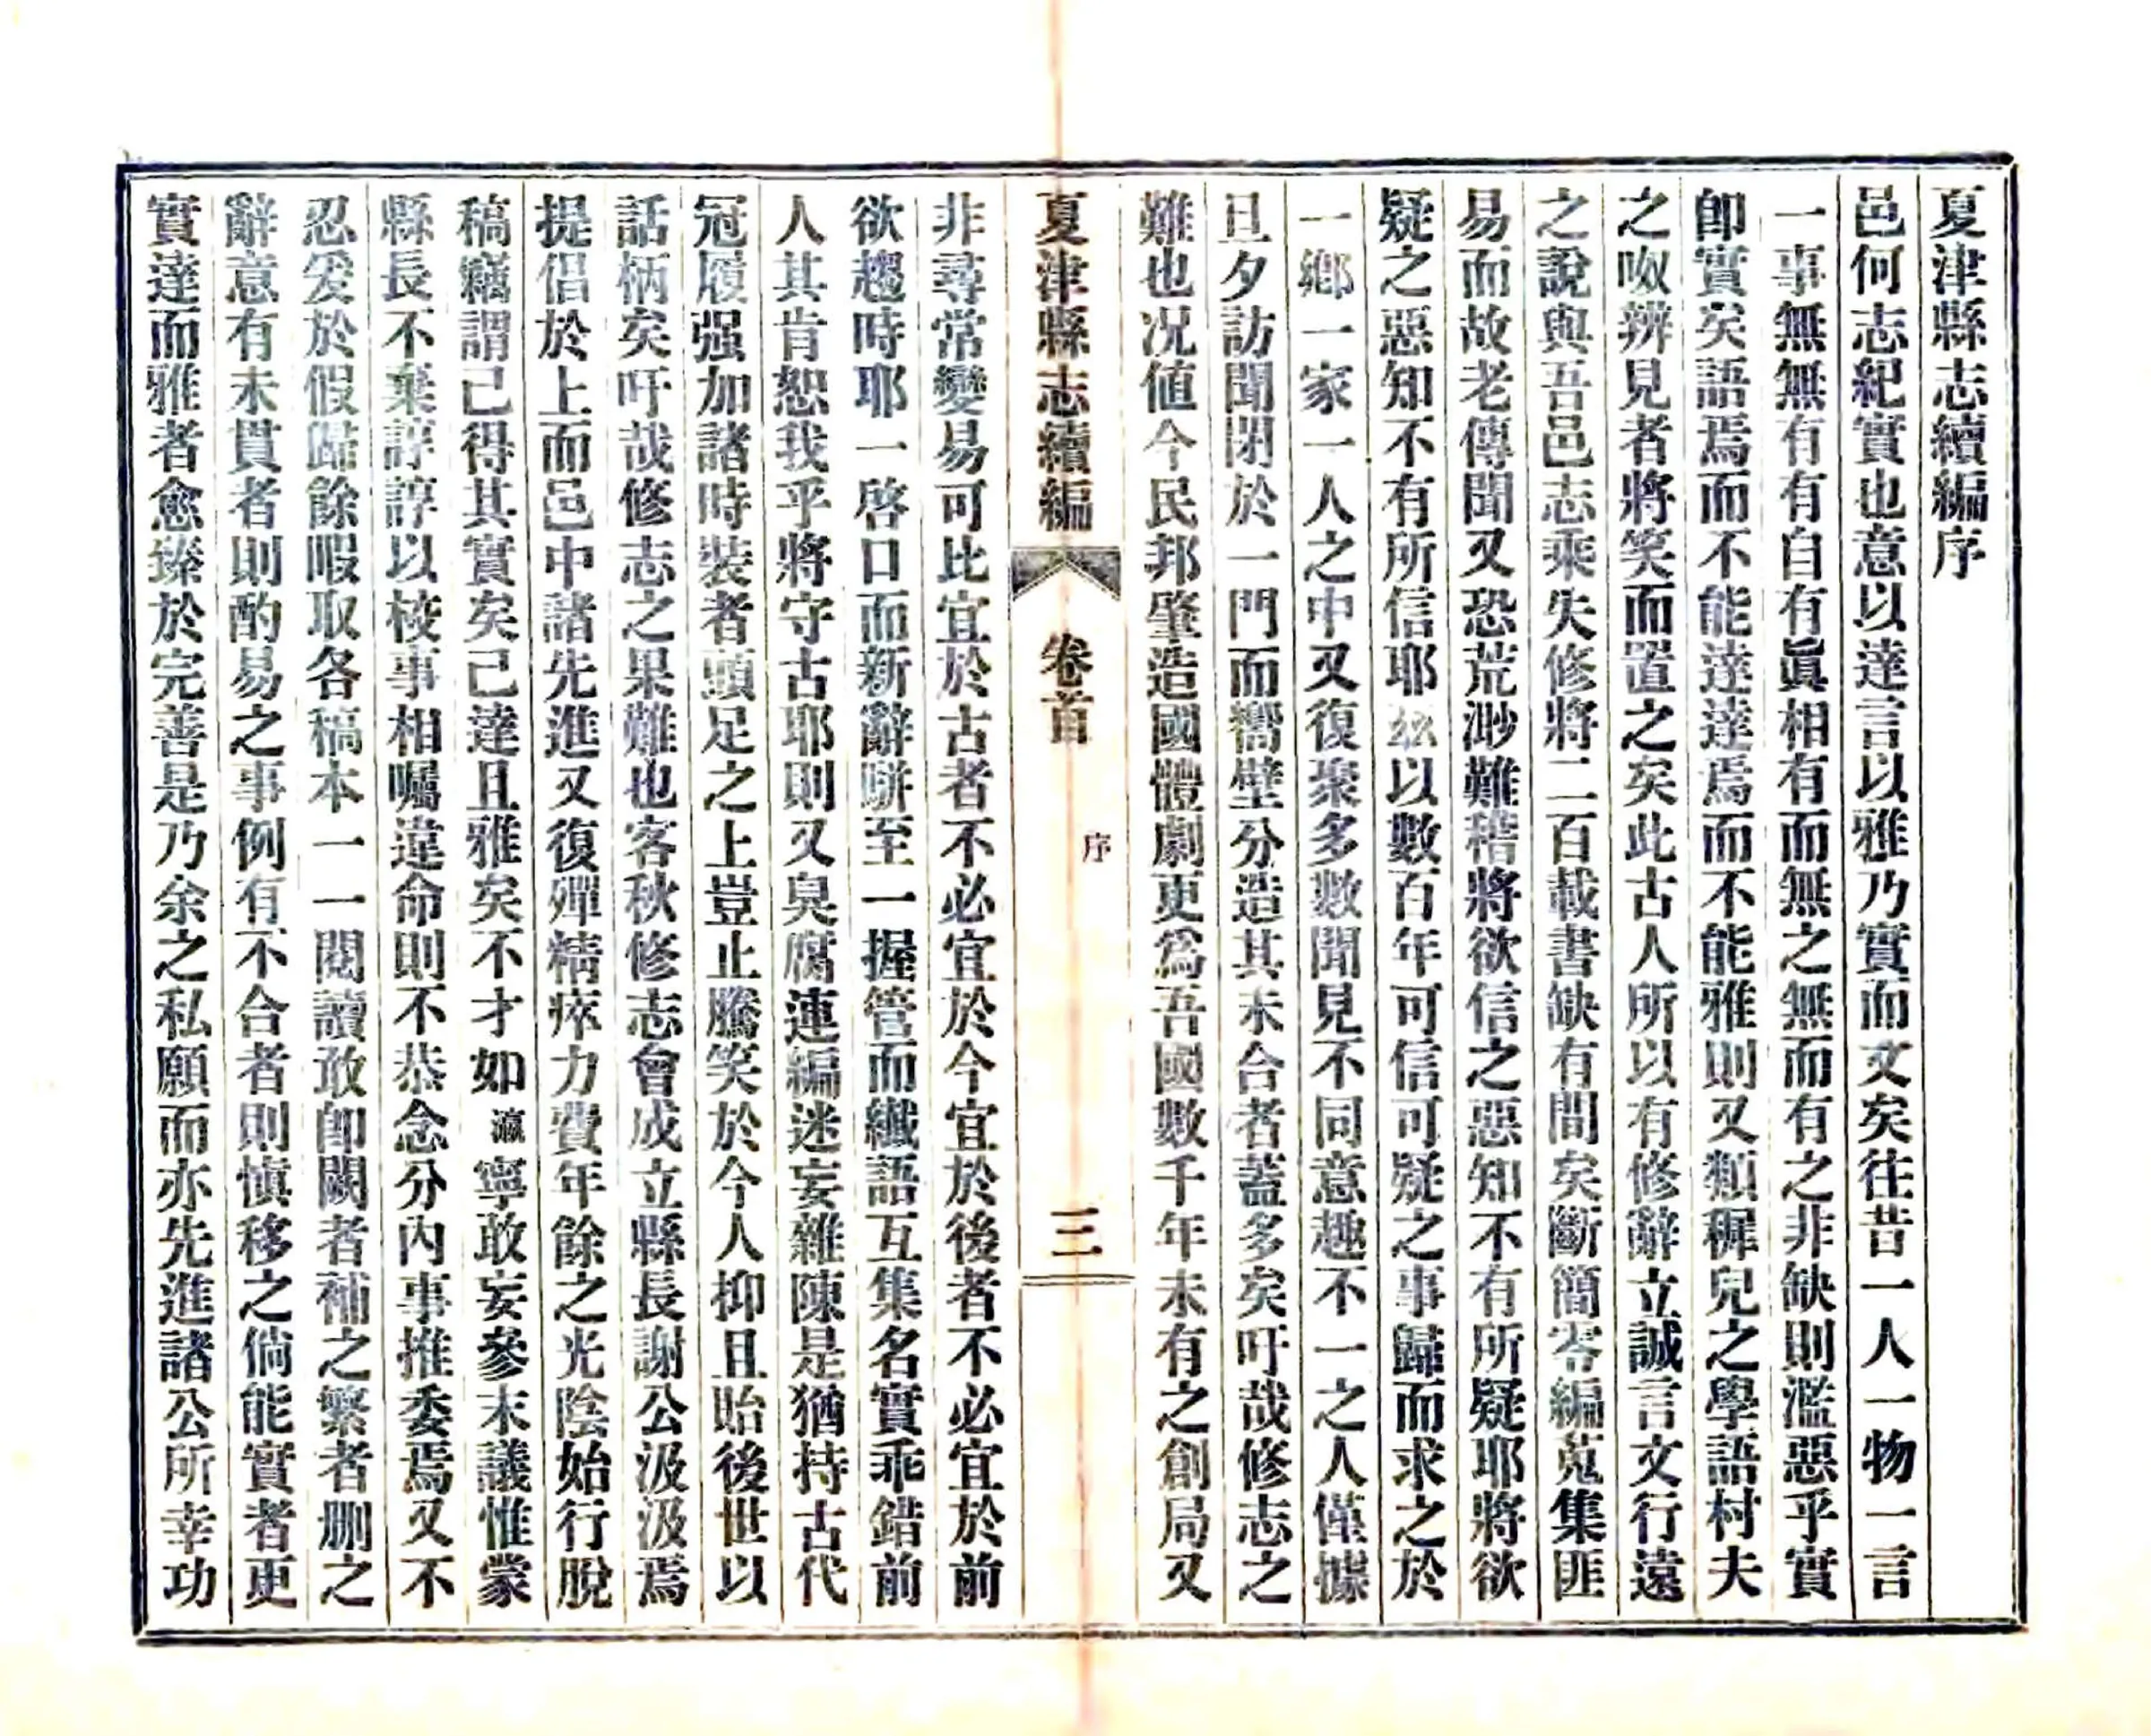 夏津縣志續編序
邑何志紀實也意以達言以雅乃實而文矣往昔一人一物一言
一事無無有有自有眞相有而無之無而有之非缺則濫惡乎實
卽實矣語焉而不能達達焉而不能雅則又類穉兒之學語村夫
之呶辨見者將笑而置之矣此古人所以有修辭立誠言文行遠
之說與吾邑志乘失修將二百載書缺有間矣斷簡零編蒐集匪
易而故老傳聞又恐荒渺難稽將欲信之惡知不有所疑耶將欲
疑之惡知不有所信耶茲以數百年可信可疑之事歸而求之於
一鄉一家一人之中又復衆多數聞見不同意趣不一之人僅據
旦夕訪聞閉於一門而嚮壁分造其未合者蓋多矣吁哉修志之
難也况値今民邦肇造國體劇更爲吾國數千年未有之創局又
夏津縣志續編 卷首 序 三
非尋常變易可比宜於古者不必宜於今宜於後者不必宜於前
欲趨時耶一啓口而新辭騈至一握管而纖語互集名實乖錯前
人其肯恕我乎將守古耶則又臭腐連編迷妄雜陳是猶持古代
冠履强加諸時裝者頭足之上豈止騰笑於今人抑且貽後世以
話柄矣吁哉修志之果難也客秋修志會成立縣長謝公汲汲焉
提倡於上而邑中諸先進又復殫精瘁力費年餘之光陰始行脫
稿竊謂已得其實矣已達且雅矣不才如瀛寧敢妄參末議惟蒙
縣長不棄諄諄以校事相囑違命則不恭念分內事推委焉又不
忍爰於假歸餘暇取各稿本一一閱讀敢卽闕者補之繁者删之
辭意有未貫者則酌易之事例有不合者則愼移之倘能實者更
實達而雅者愈臻於完善是乃余之私願而亦先進諸公所幸功